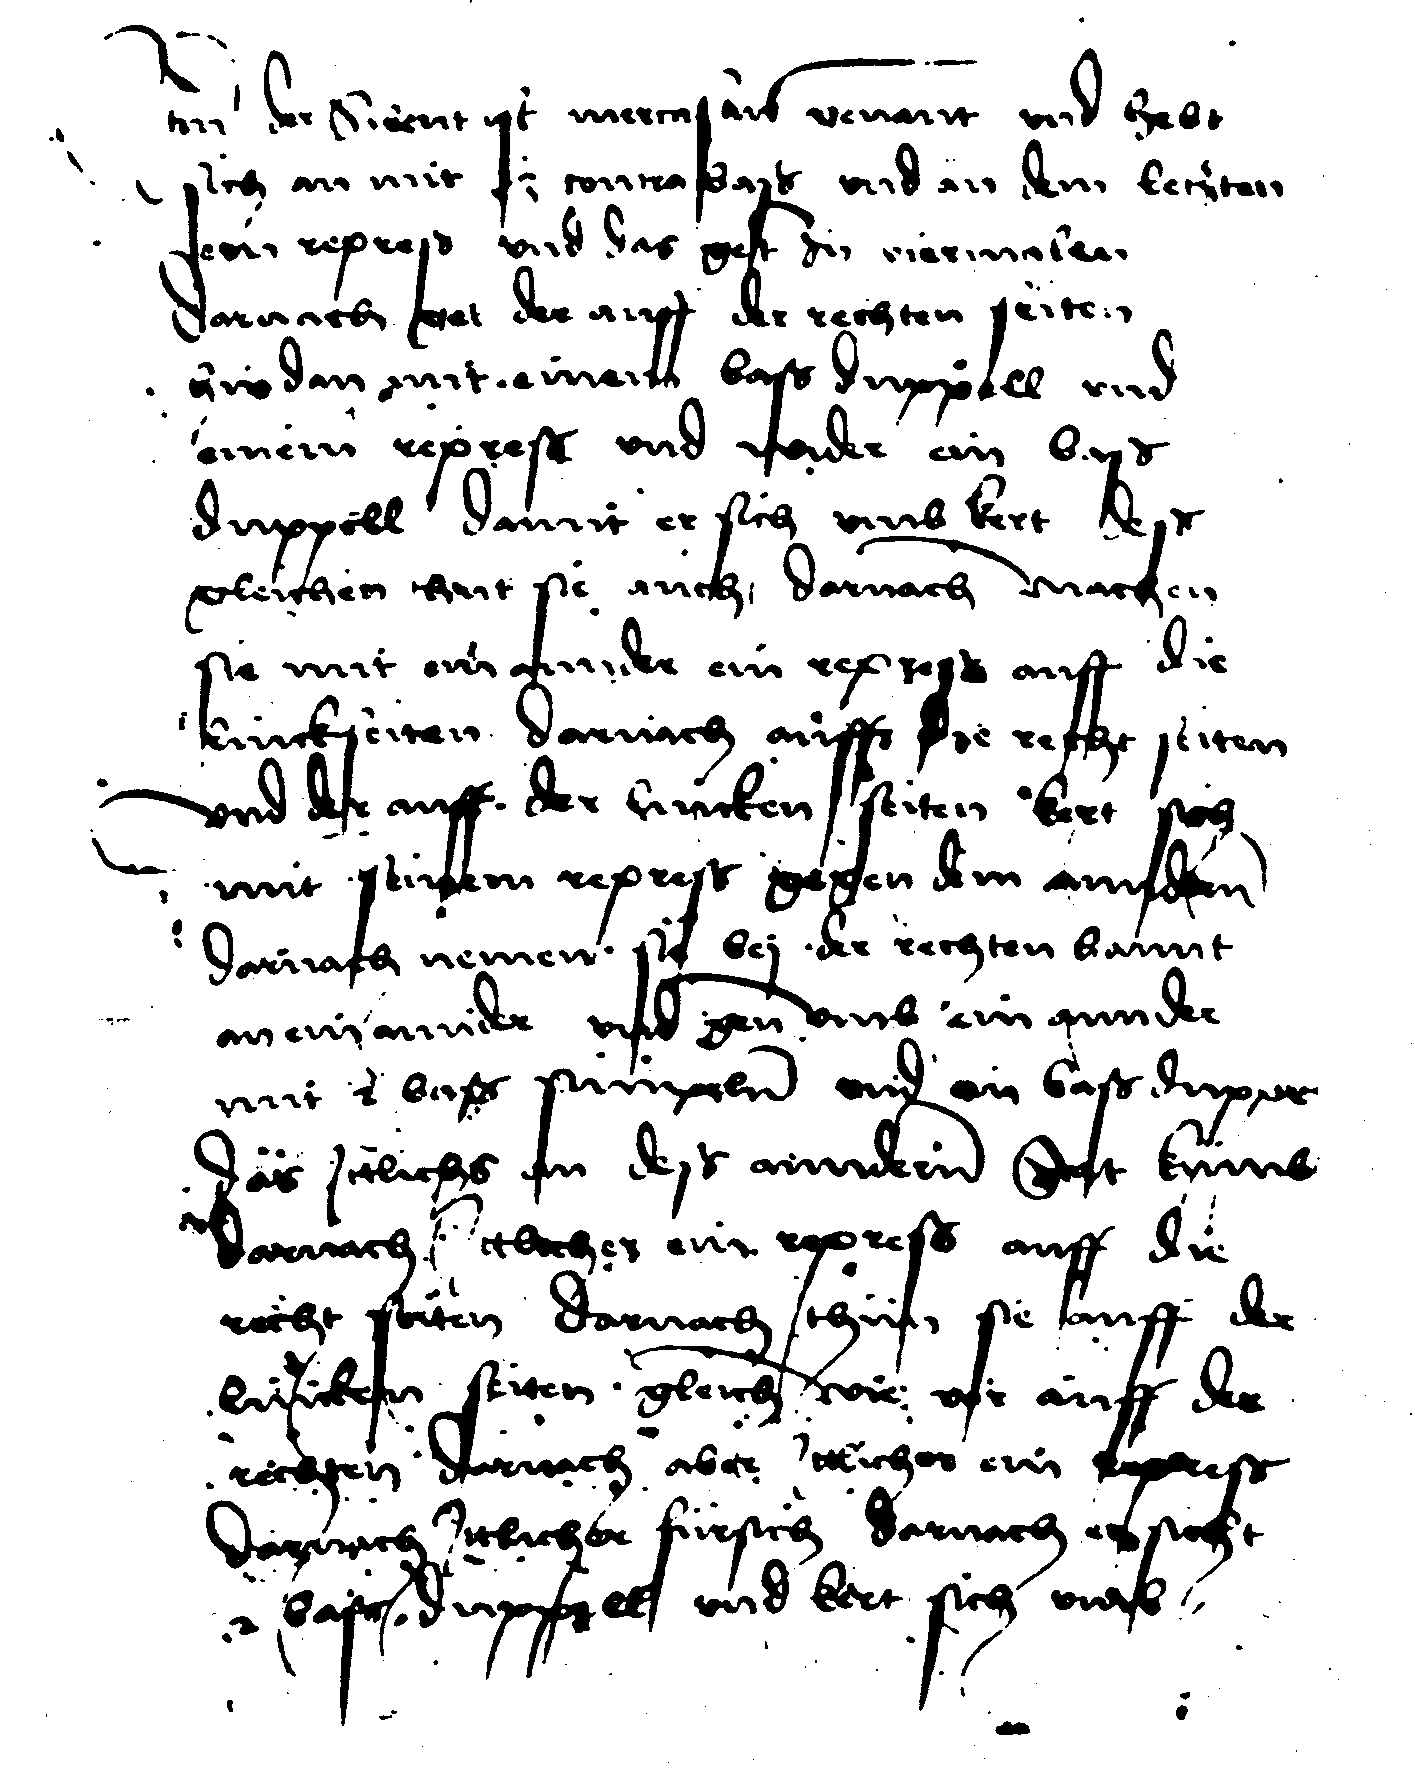 Itm̄ der Viernt ist mercksan venant vnd hebt
sich an mit iij contra bass vnd an dem letzten
sein repress vnd das gest Zu viermalen
darnach get der auff der rechten seiten
hindan mit einem bass duppell vnd
einem repress vnd wider ein bass
duppell damit er sich vmb kert dess
gleichen thut sie auch darnach machen
sie mit ein annder ein repress auff die
linckseiten darnach auff die recht seiten
vnd der auff der lincken seiten kert sich
mit seinem repress gegen dem anndern
darnach nemen sie bei der rechten hannt
an ein annder vnd gen vmb ein annder
mit 2 bass simpeln vnd ein bass dupper
das ittlichs an dess anndern stat kumb
darnach ittlicher ein repress auff die
recht seiten darnach thun sie auff der
lincken seiten gleich wie vor auff der
rechten darnach aber ittlicher ein repress
darnach ittlicher fursich darnach ersicht
2 bass duppell vnd kert sich vmb